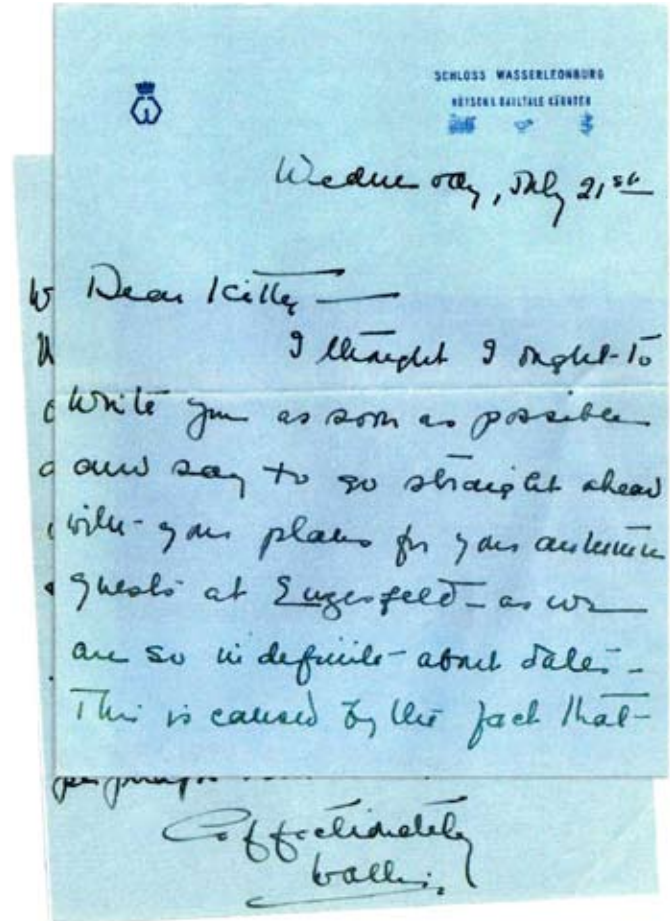 SCHLOSS WASSERLEONBURG
Wednesday, July 21st
Dear Kitty —
I thought I ought to
write you as soon as possible
and say to go straight ahead
with your plans for your autumn
guests at Enzesfeld - as we
are so indefinite about dates -
This is caused by the fact that -
Affectionately
Wallis.